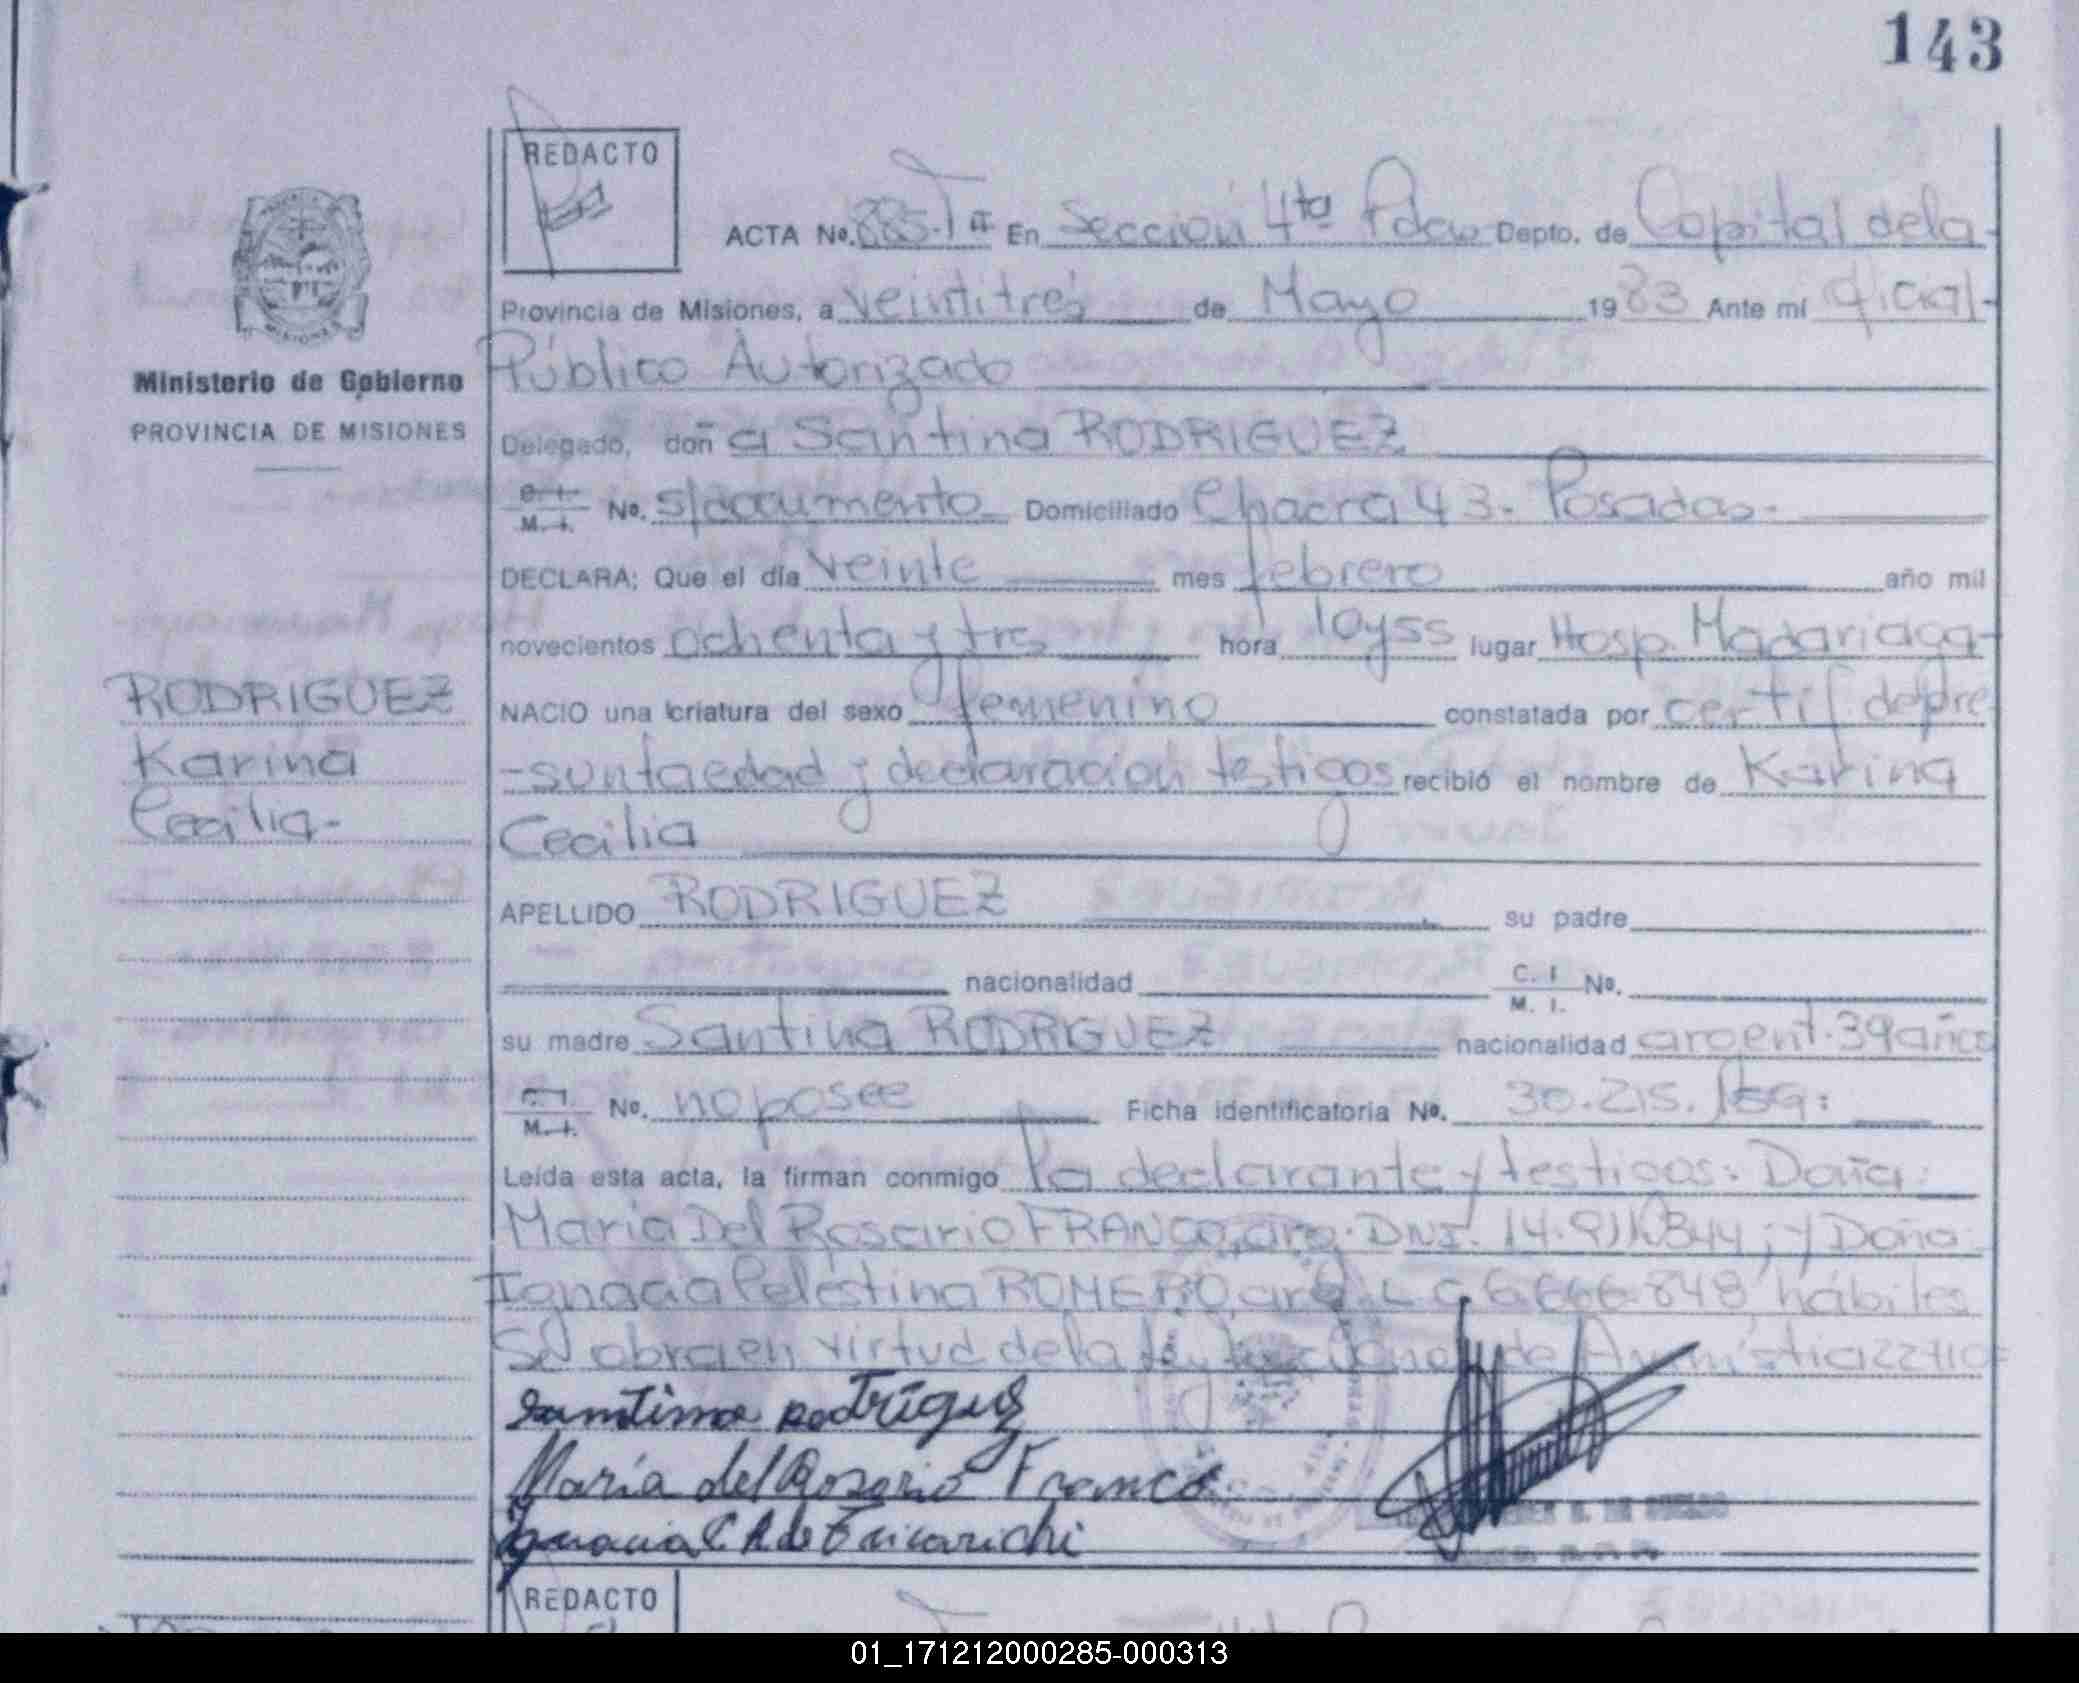 143
REDACTO
ACTA No. 885.Tº I En Sección 4ta Pdas Depto. de Capital de la-
Provincia de Misiones, a veintitrés de Mayo 1983 Ante mí oficial-
Ministerio de Gobierno
PROVINCIA DE MISIONES
Público Autorizado
Delegado, doña Santina RODRIGUEZ
C. I. M. I. No. s/documento Domiciliado Chacra 43. Posadas.
DECLARA; Que el día veinte mes febrero año mil
novecientos ochenta y tres hora 10y55 lugar Hosp. Madariaga-
RODRIGUEZ
Karina
Cecilia-
NACIO una criatura del sexo femenino constatada por certif. de pre
-sunta edad y declaración testigos recibió el nombre de Karina
Cecilia
APELLIDO RODRIGUEZ su padre
nacionalidad C. I M. I. No.
su madre Santina RODRIGUEZ nacionalidad argent. 39 años
C. I. M. I. No. no posee Ficha identificatoria No. 30.215.
Leída esta acta, la firman conmigo la declarante y testigos: Doña:
María Del Rosario FRANCO, arg. DNI. 14. 344; y Doña
Ignacia Celestina ROMERO, arg. L C 6.666.848 hábiles
Se labra en virtud de la ley Nacional de Amnistia 22410-
santima Rodriguez
María del Rosario Franco
Ignacia C R de
REDACTO
01_171212000285-000313